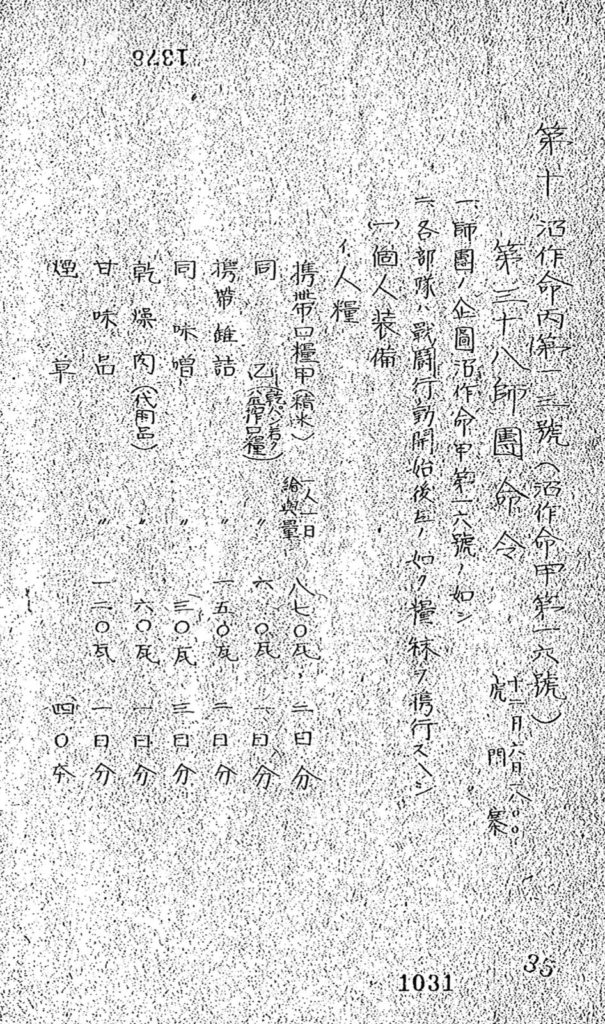 1378
第十 沼作命丙第一三號(沼作命甲第一六號)
第三十八師團命令
十二月六日一八〇〇
虎門寨
一、師團ノ企圖沼作命甲第一六號ノ如シ
二、各部隊ハ戰鬪行動開始後左ノ如ク糧秣ヲ携行スヘシ
(一)個人装備
イ、人糧
携帶口糧甲(精米) 一人一日給與量 八七〇瓦 二日分
同 乙 〃 一日分
携帶罐詰 〃 一五〇瓦 二日分
同 味噌 〃 三〇瓦 三日分
乾燥肉(代用品) 〃 六〇瓦 一日分
甘味品 〃 一二〇瓦 一日分
煙草 四〇本
1031
35